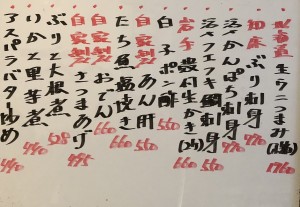 生ウニつまみ(2貫) 1760
ぶり刺身 770
活〆かんぱち刺身 770
活〆フエフキ鯛刺身 660
岩手 殻付生かき(2ケ) 560
白子ポン酢 660
自家製 あん肝 550
たち魚塩焼き 560
自家製 おでん 660
自家製 さつまあげ 495
ぶりと大根煮 528
いかと里芋煮 440
アスパラバターゆめ 440